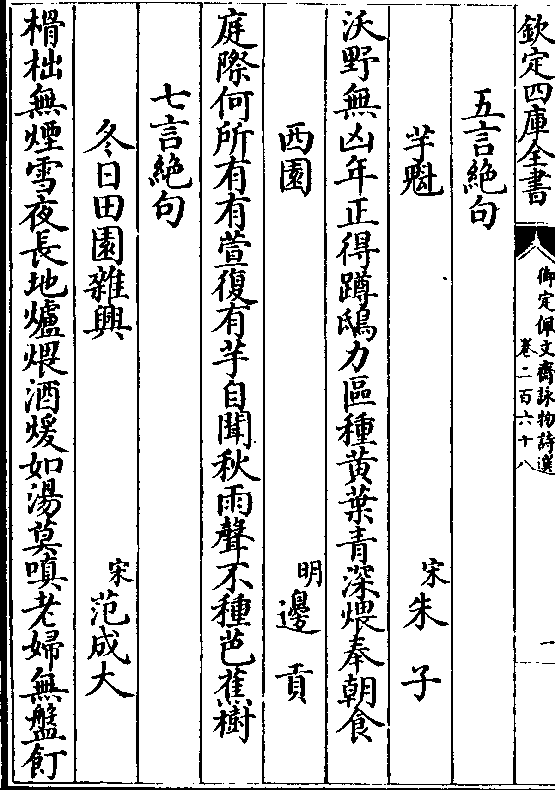 欽定四庫全書
御定佩文齋詠物詩選
卷二百六十八
一
五言絶句
芋魁
宋朱子
沃野無凶年正得蹲鴟力區種黄葉青深煨奉朝食
西園
明邊貢
庭際何所有有萱復有芋自聞秋雨聲不種芭蕉樹
七言絶句
冬日田園雜興
宋范成大
榾柮無煙雪夜長地爐煨酒煖如湯莫嗔老婦無盤飣